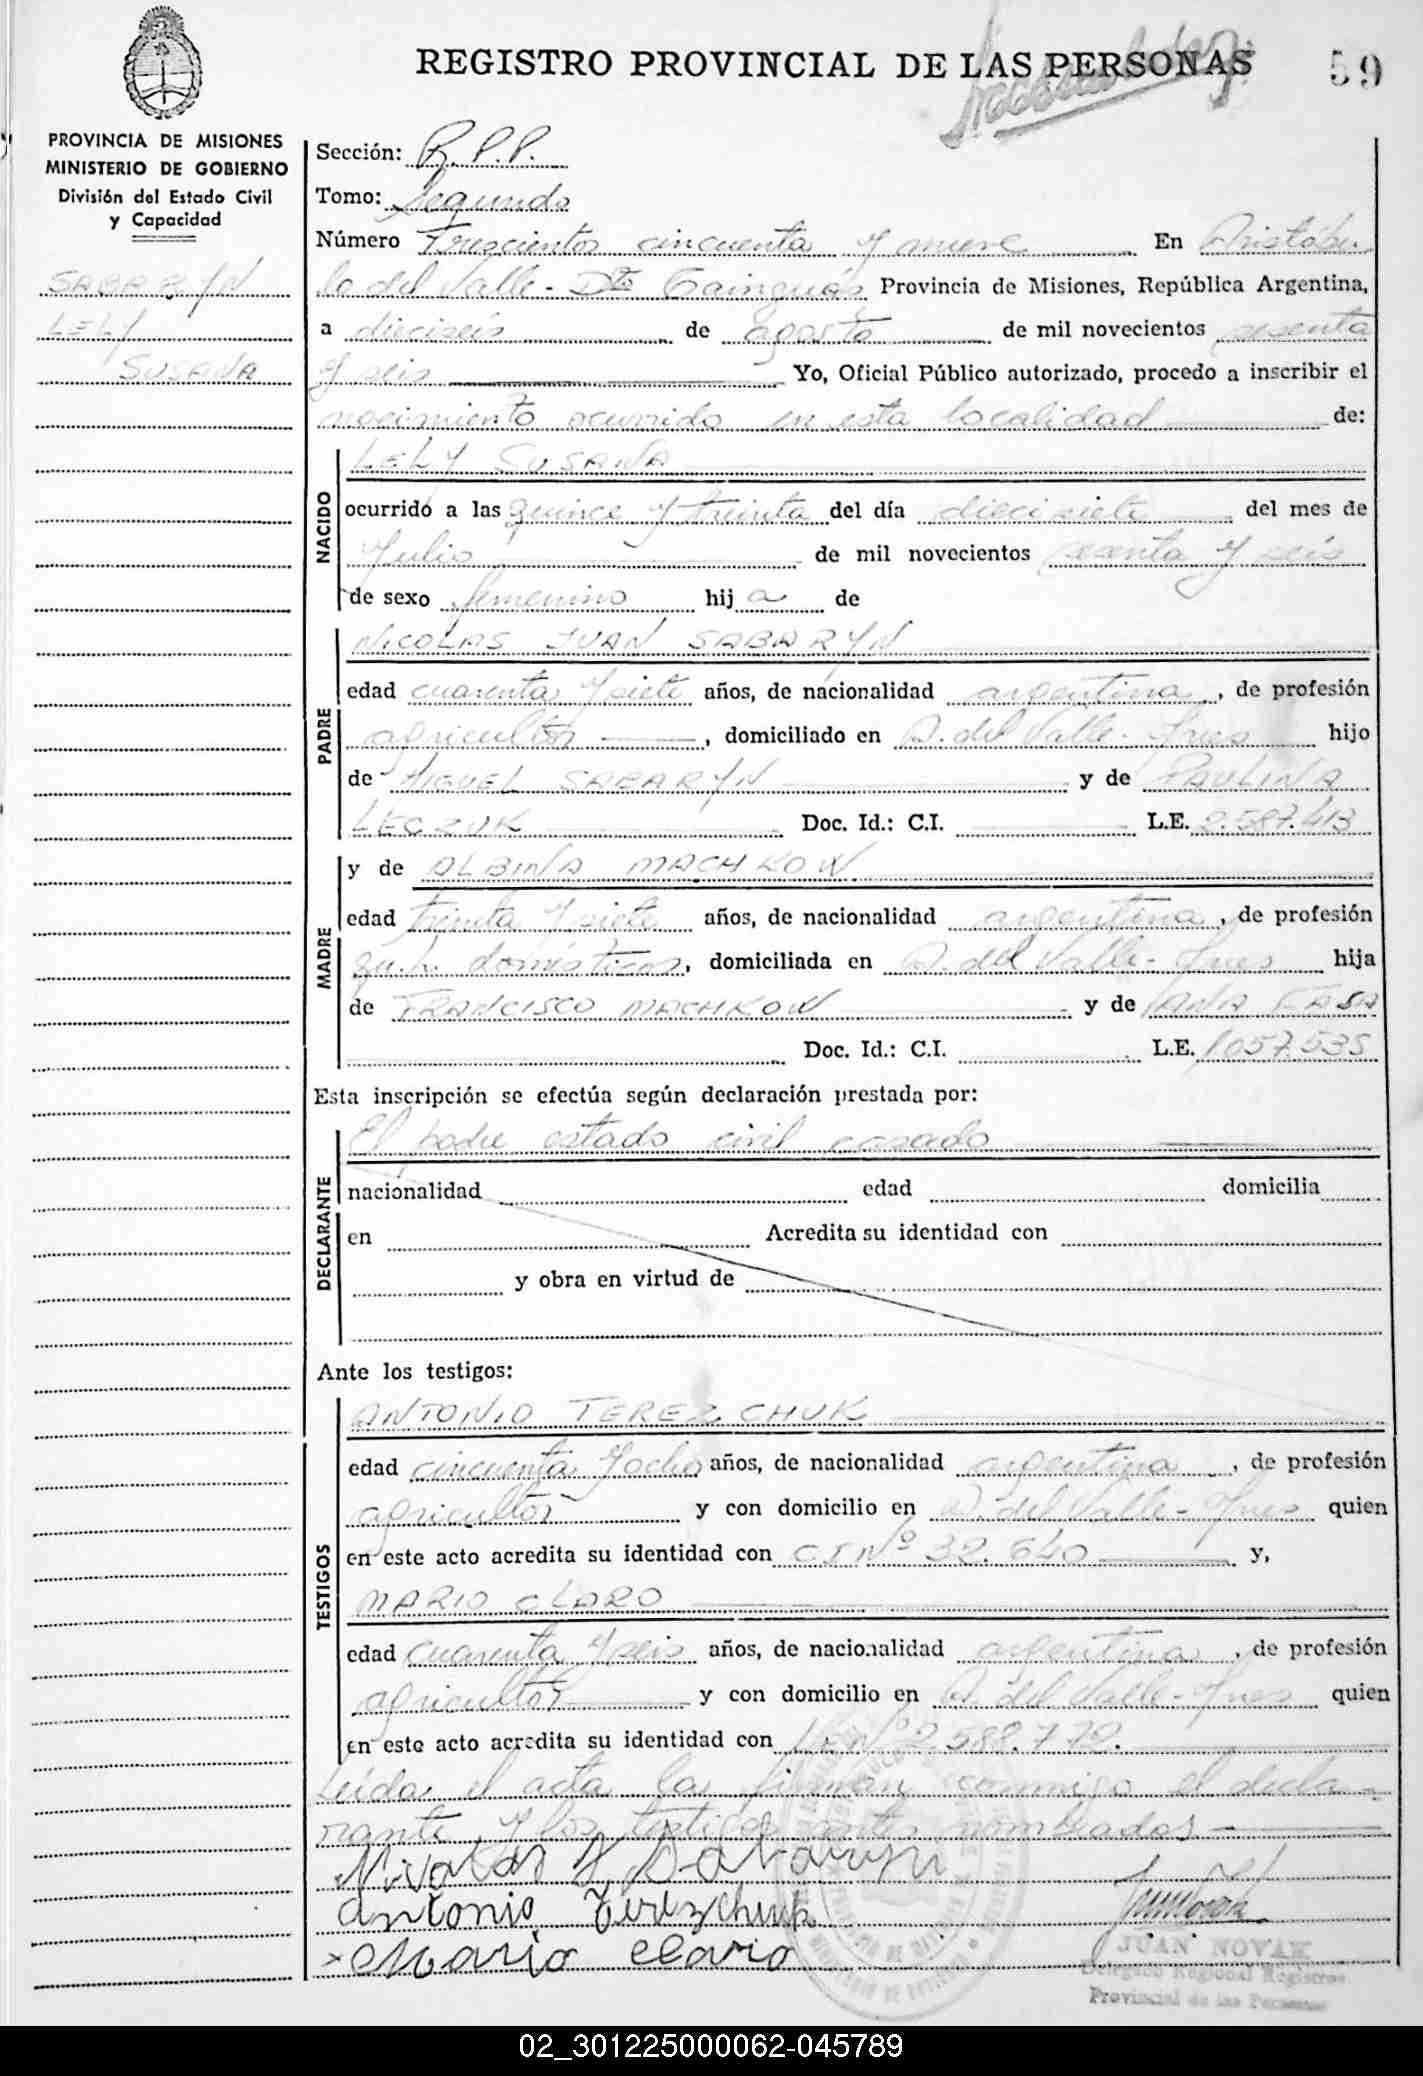 REGISTRO PROVINCIAL DE LAS PERSONAS
59
PROVINCIA DE MISIONES
MINISTERIO DE GOBIERNO
División del Estado Civil
y Capacidad
SABARYN
LELY
SUSANA
Sección: R.P.P.
Tomo: Segundo
Número Trescientos cincuenta y nueve En Aristóbu
lo del Valle - Dto Cainguás Provincia de Misiones, República Argentina,
a dieciseis de agosto de mil novecientos sesenta
y seis Yo, Oficial Público autorizado, procedo a inscribir el
nacimiento ocurrido en esta localidad de:
NACIDO
LELY SUSANA
ocurrido a las quince y treinta del día diecisiete del mes de
Julio de mil novecientos sesenta y seis
de sexo femenino hij a de
PADRE
NICOLAS JUAN SABARYN
edad cuarenta y siete años, de nacionalidad argentina, de profesión
agricultor, domiciliado en A. del Valle - Mnes hijo
de MIGUEL SABARYN y de PAULINA
LECZUK Doc. Id.: C.I. L.E. 2.587.413
MADRE
y de ALBINA MACHKOW
edad treinta y siete años, de nacionalidad argentina, de profesión
qu.h. domésticos, domiciliada en A. del Valle - Mnes hija
de FRANCISCO MACHKOW y de ANA
Doc. Id.: C.I. L.E. 1.057.535
Esta inscripción se efectúa según declaración prestada por:
DECLARANTE
El padre estado civil casado
nacionalidad edad domicilia
en Acredita su identidad con
y obra en virtud de
Ante los testigos:
TESTIGOS
ANTONIO TEREZCHUK
edad cincuenta y ocho años, de nacionalidad argentina, de profesión
agricultor y con domicilio en A. del Valle - Mnes quien
en este acto acredita su identidad con C I Nº 32.640 y,
MARIO CLARO
edad cuarenta y seis años, de nacionalidad argentina, de profesión
agricultor y con domicilio en A. del Valle - Mnes quien
en este acto acredita su identidad con L E Nº 2.588.772.
Leida el acta la firman conmigo el decla
rante y los testigos antes nombrados
Nicolas J Sabaryn
Antonio Terezchuk
Mario Claro
JUAN NOVAK
Delegado Regional Registro
Provincial de las Personas
02_301225000062-045789